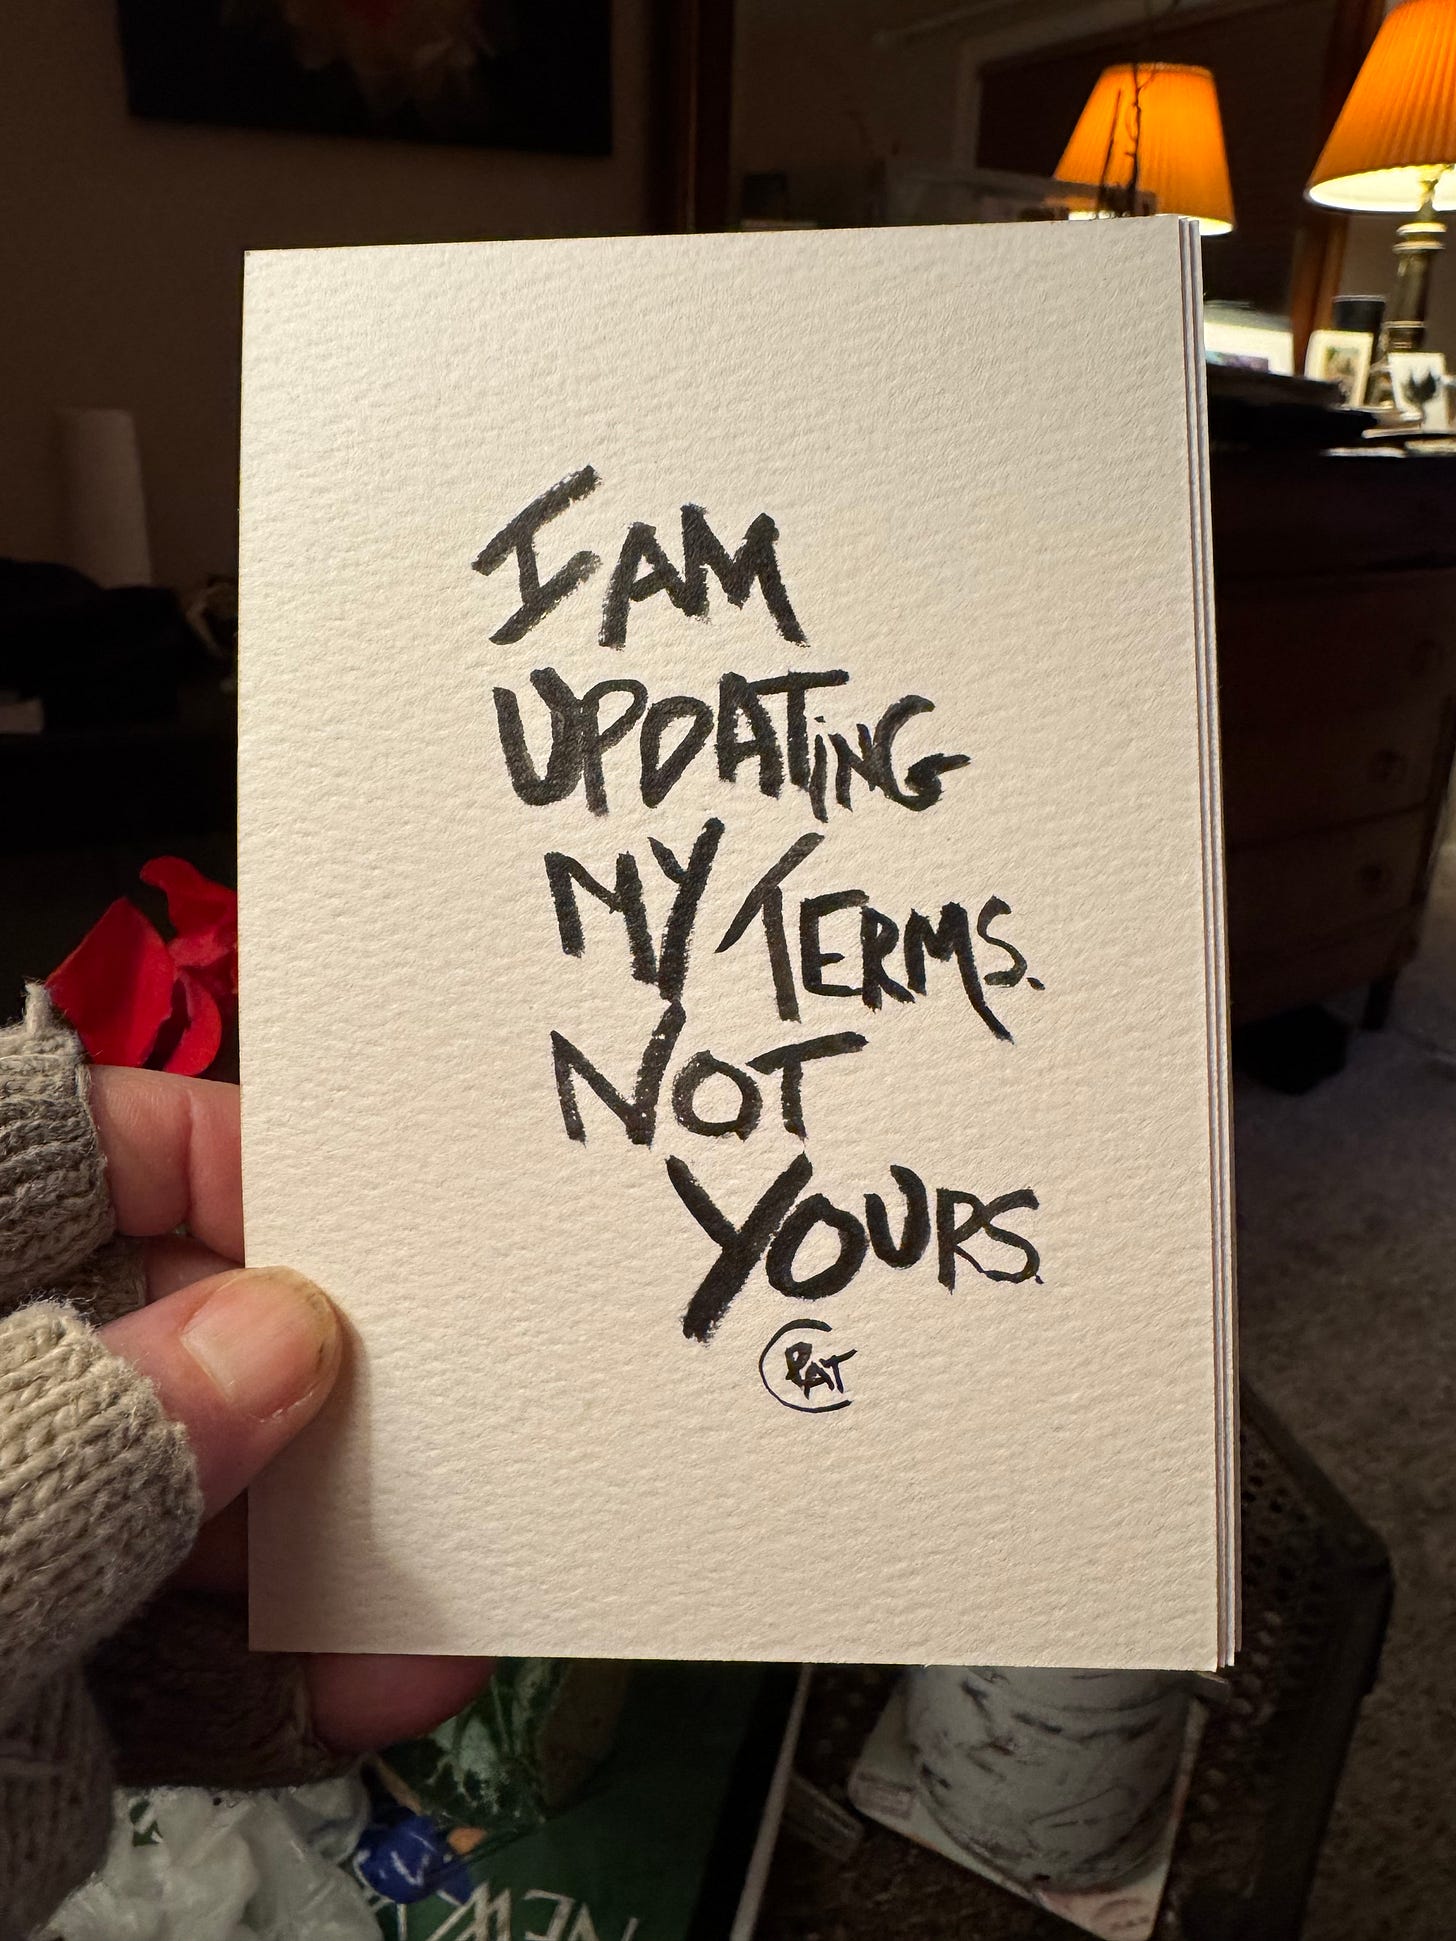 I AM
UPDATiNG
MY TERMS.
NOT
YOURS.
PAT
NEW